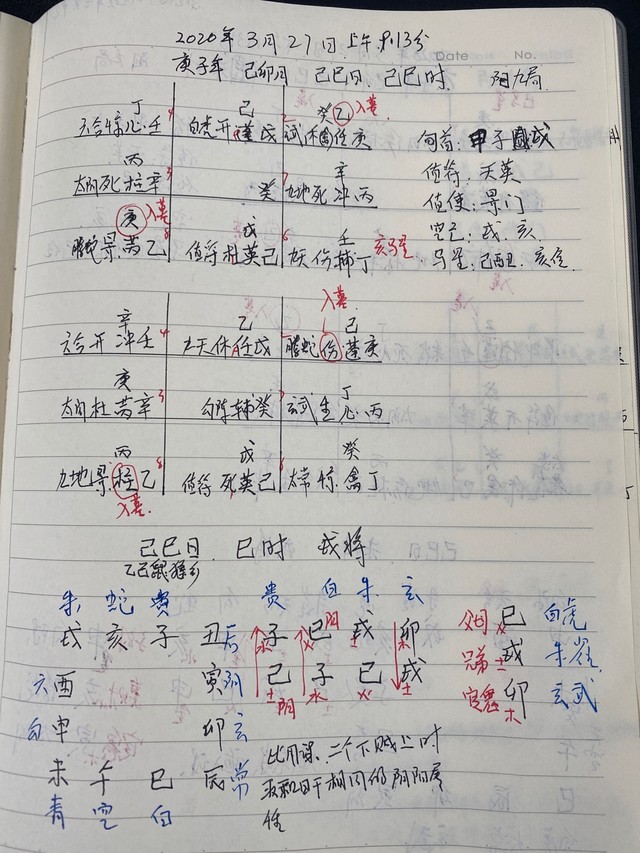 2020年3月27日上午9:13分
Date No.
庚子年 己卯月 己巳日 己巳时 阳九局
丁 4 己 2 癸 乙 入墓
六合惊心壬 白虎开蓬戊 玄武休任庚 旬首:甲子戊
丙 3 7 辛 值符:天英
太阴死柱辛 癸 九地死冲丙 值使:景门
庚 入墓 空亡:戌.亥
8 戊 6 壬 亥马星
螣蛇景芮乙 值符杜英己 九天伤辅丁 马星:
入墓
辛 乙 己
六合开冲壬 4 九天休任戊 2 螣蛇伤蓬庚
庚 丁
太阴杜芮辛 3 勾陈辅癸 7 玄武生心丙
丙 戊 癸
九地景柱乙 8 值符死英己 6 太常惊禽丁
入墓
己巳日 巳时 戌将
乙己鼠猴乡
朱 蛇 贵 贵 白 朱 玄
戌 亥 子 丑 后 子 巳 戌 卯 巳 白虎
水 阳 火 土 木 火
六 酉 寅 阴 己 子 巳 戌 兄弟 戌 土 朱雀
土 阴 水 火 土 官鬼 卯 木 玄武
勾 申 卯 玄
比用课、二个下贼上时
未 午 巳 辰 常
取和日干相同的阴阳属
青 空 白 性